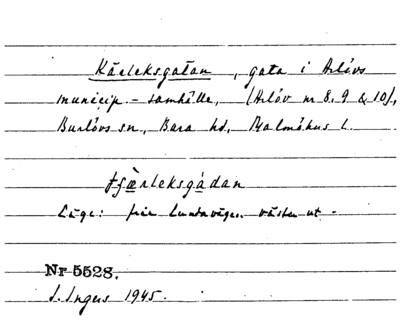 Kärleksgatan, gata i Arlövs
municip.-samhälle, (Arlöv nr 8, 9 & 10),
Burlövs sn, Bara hd, Malmöhus l.
tjæ̀rleksgádan
Läge: från Lundavägen väster ut -
Nr 5528.
I. Ingers 1945.